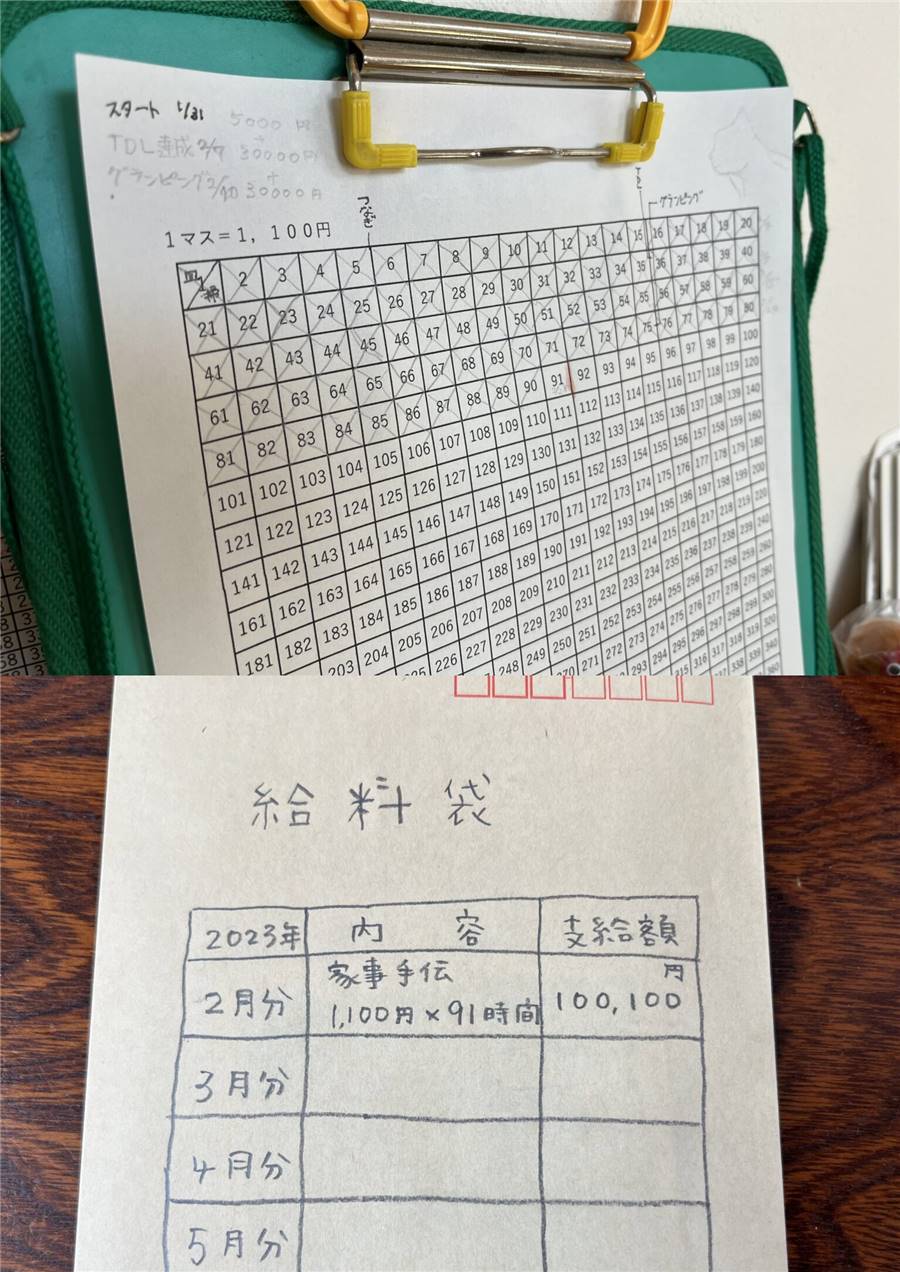 スタート 1/31 5000円
TDL達成2/7 30000円
グランピング2/10 30000円
つなぎ
グランピング
1マス=1，100円
皿 1 2 3 4 5 6 7 8 9 10 11 12 13 14 15 16 17 18 19 20
21 22 23 24 25 26 27 28 29 30 31 32 33 34 35 36 37 38 39 40
41 42 43 44 45 46 47 48 49 50 51 52 53 54 55 56 57 58 59 60
61 62 63 64 65 66 67 68 69 70 71 72 73 74 75 76 77 78 79 80
81 82 83 84 85 86 87 88 89 90 91 92 93 94 95 96 97 98 99 100
101 102 103 104 105 106 107 108 109 110 111 112 113 114 115 116 117 118 119 120
121 122 123 124 125 126 127 128 129 130 131 132 133 134 135 136 137 138 139 140
141 142 143 144 145 146 147 148 149 150 151 152 153 154 155 156 157 158 159 160
161 162 163 164 165 166 167 168 169 170 171 172 173 174 175 176 177 178 179 180
181 182 183 184 185 186 187 188 189 190 191 192 193 194 195 196 197 198 199 200
203 204 205 206 207 208 209 210 211 212 213 214 215 216 217 218 219 220
226 227 228 229 230 231 232 233 234 235 236 237 238 239 240
248 249 250 251 252 253 254 255 256 257 258 259 260
271 272 273 274 275 276 277 278 279 280
293 294 295 296 297 298 299 300
315 316 317 318 319 320
338 339 340
360
給料袋
2023年 内容 支給額
2月分 家事手伝 円
1,100円×91時間 100,100
3月分
4月分
5月分